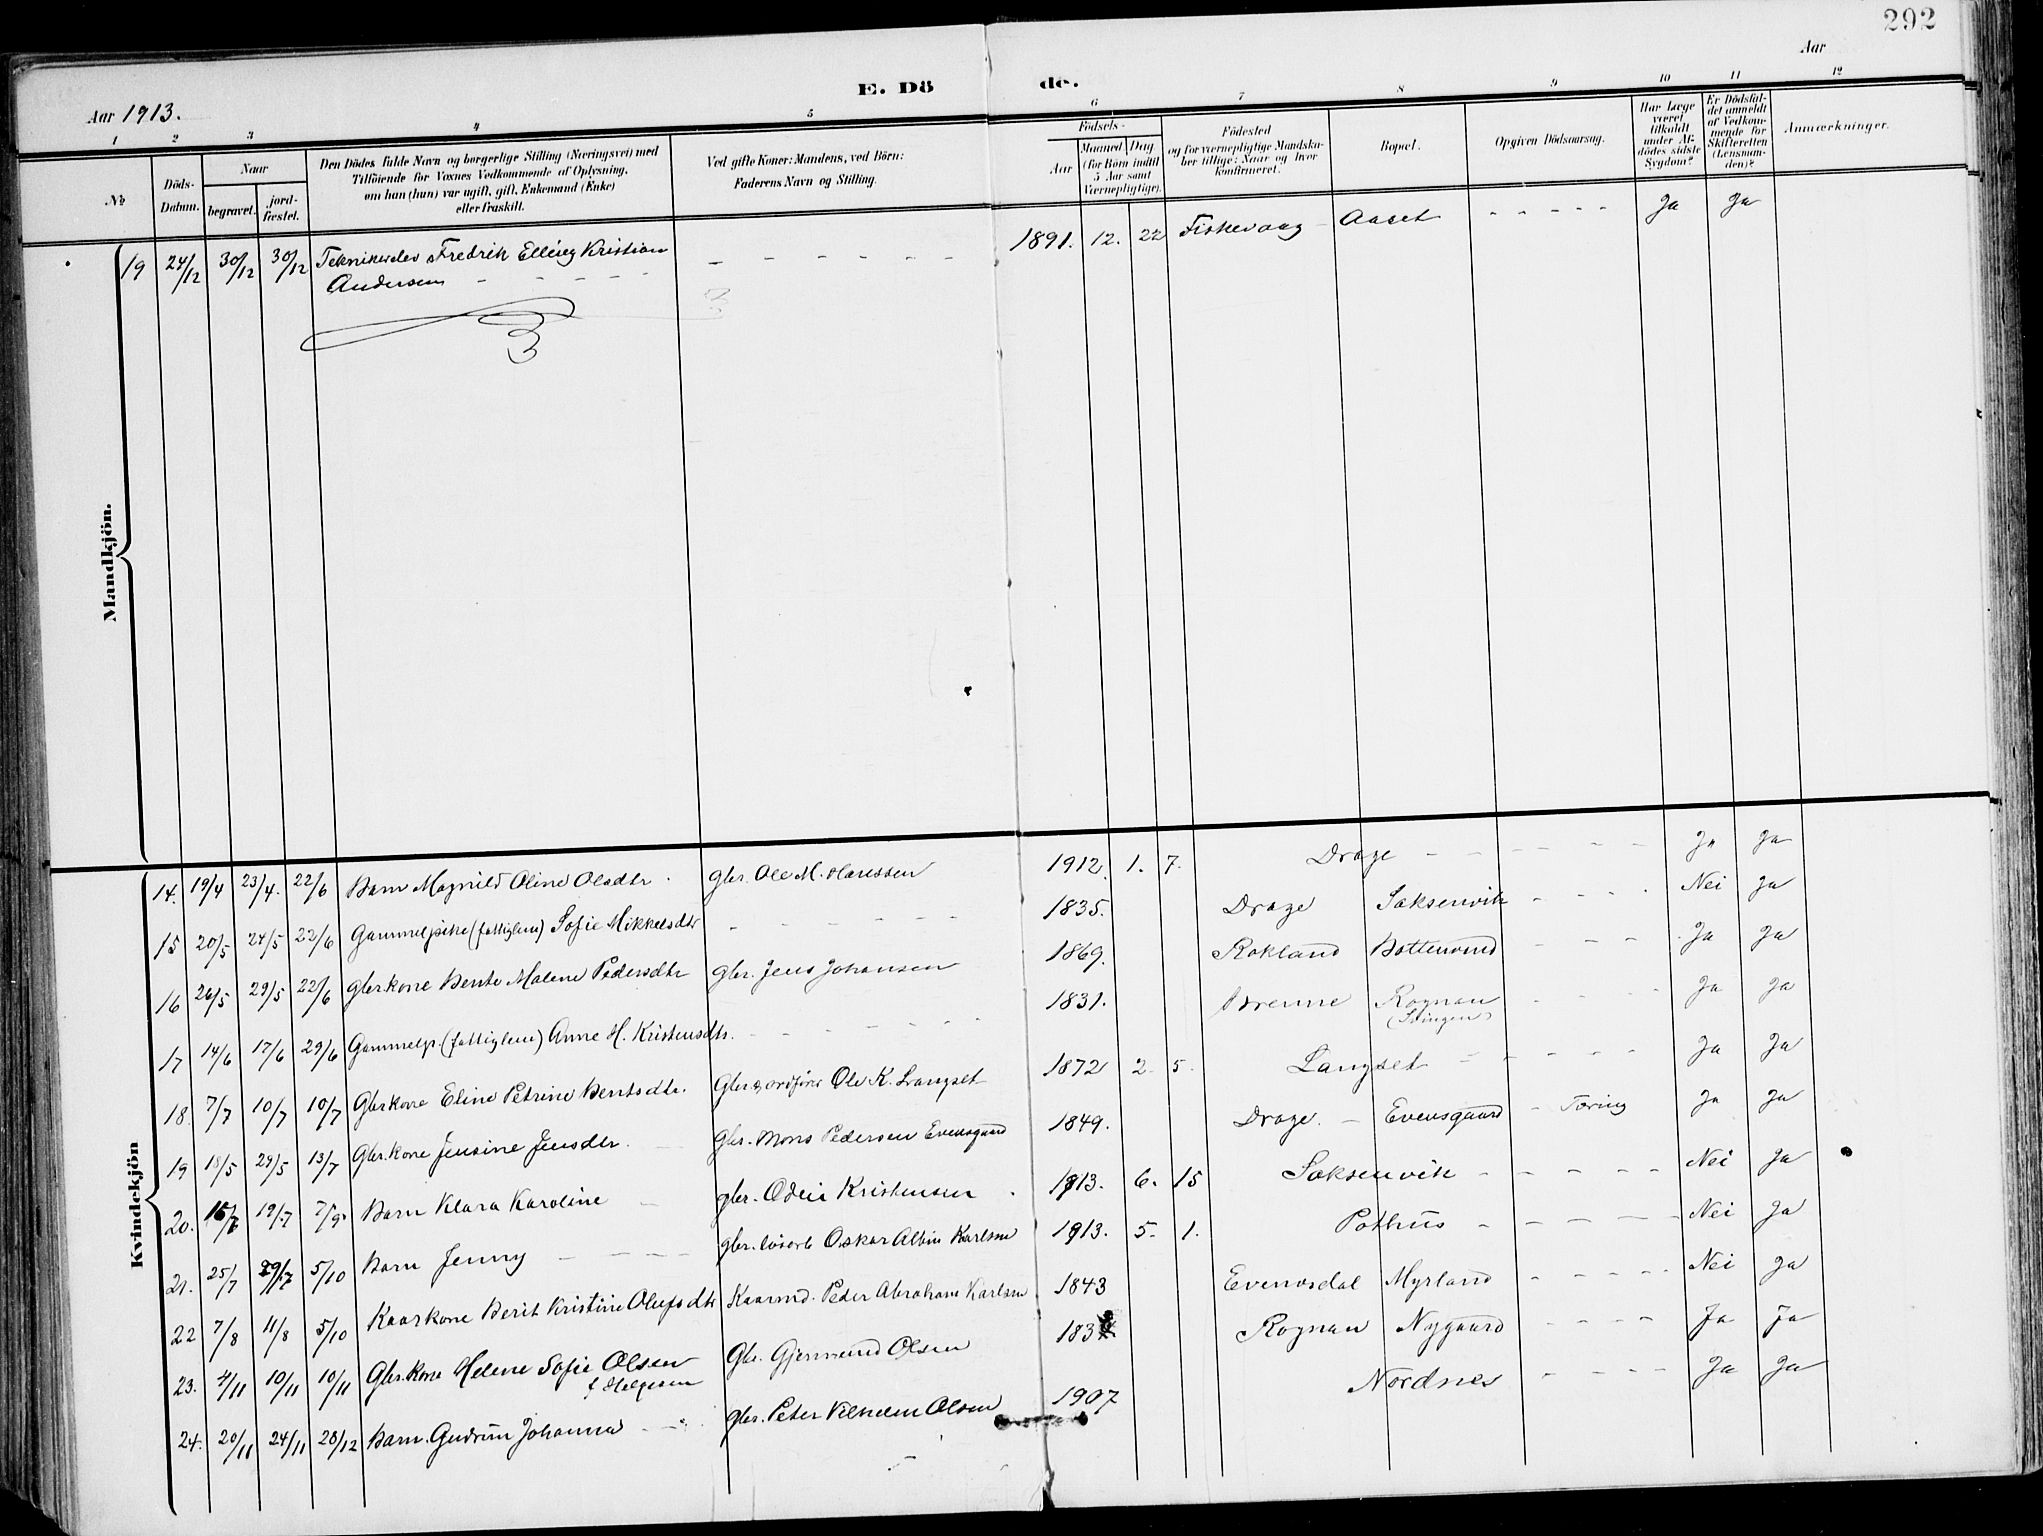 292
Aar 1913.
E. Dö de.
Aar
1 2 3 4 5 6 7 8 9 10 11 12
No
Döds-
Datum.
Naar
begravet.
jord-
fæstet.
Den Dödes fulde Navn og borgerlige Stilling (Næringsvei) med
Tilföiende for Voxnes Vedkommende af Oplysning,
om han (hun) var ugift, gift, Enkemand (Enke)
eller fraskilt.
Ved gifte Koner: Mandens, ved Börn:
Faderens Navn og Stilling.
Födsels-
Aar
Maaned Dag
(for Börn indtil
5 Aar samt
Værnepligtige).
Födested
og for værnepligtige Mandska-
ber tillige: Naar og hvor
konfirmeret.
Bopæl.
Opgiven Dödsaarsag.
Har Læge
været
tilkaldt
under Af-
dödes sidste
Sygdom?
Er Dödsfal-
det anmeldt
af Vedkom-
mende for
Skifteretten
(Lensman-
den)?
Anmærkninger.
Mandkjön.
19 24/12 30/12 30/12 Teknikerelev Fredrik Elling Kristian - - - - - - 1891. 12. 22 Fiskevaag - Aaset - - - - - Ja Ja
Andersen - - - - -
Kvindekjön
14. 19/4 23/4. 22/6 Barn Magnild Oline Olsdtr. gbr. Ole M. Hanssen 1912. 1. 7. Drage - - - - - - Ja Ja
15 20/5 24/5 22/6 Gammelpike (fattiglem) Sofie Mikkelsdtr - - - - - - 1835. Drage Saksenvik - - - - Nei Ja
16 26/5 29/5 22/6 Gbr.kone Bente Malene Pedersdtr gbr. Jens Johansen 1869. Rokland Bottenvand - - - - Ja Ja
17 14/6 17/6 29/6 Gammelp. (fattiglem) Anne M. Kristensdtr. - - - - - - 1831. Brenne Rognan - - - - Ja Ja
18. 7/7 10/7 10/7 Gbr.kone Eline Petrine Bentsdtr. Gbr. & ordfører Ole K. Langset 1872 2. 5. Langset - - - - - Ja Ja
19 18/5 24/5 13/7 Gbr.kone Jensine Jensdtr. gbr. Mons Pedersen Evensgaard 1849. Drage. - Evensgaard - Tæring Ja Ja
20. 16/7 19/7 7/9. Barn Klara Karoline - gbr. Odin Kristensen 1913. 6. 15 Saksenvik - - - - - Nei Ja
21. 25/7 29/7 5/10 Barn Jenny - - - - - gbr. løsarb Oskar Albin Karlsen 1913. 5. 1. Pothus - - - - - Nei Ja
22 7/8 11/8 5/10 Kaarkone Berit Kristine Olufsdtr Kaarmd. Peder Abraham Karlsen 1843 Evensdal Myrland - - - - - Nei Ja
23. 4/11 10/11 10/11 Gbr.kone Helene Sofie Olsen Gbr. Gjermund Olsen 183 Rognan Nygaard - - - - Ja Ja
f. Helgesen
24. 20/11 24/11 28/12 Barn Gudrun Johanna - - gbr. Peter Vilhelm Olsen 1907 Nordnes - - - - Ja Ja